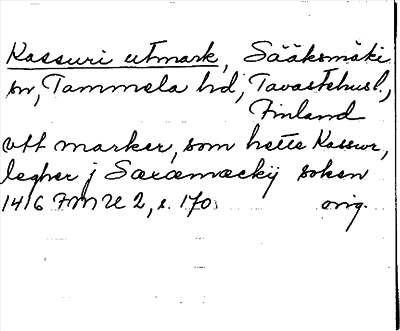 Kassuri utmark, Sääksmäki
sn, Tammela hd, Tavastehusl.,
Finland
ott marker, som hette Kassur,
legher j Saxamæckij soken
1416 FMU 2, s. 170. orig.